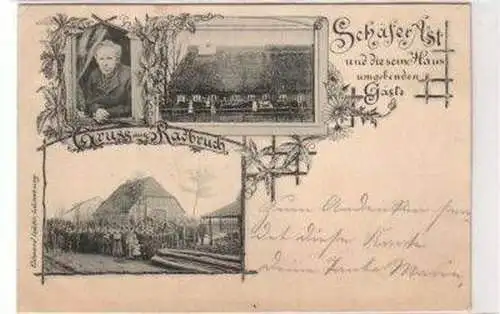 Schäfer Ast
und die sein Haus
umgebenden
Gäste
Gruss aus Radbruch
Zum Andenken sen-
det dieser Karte
Deine Tante Marie.